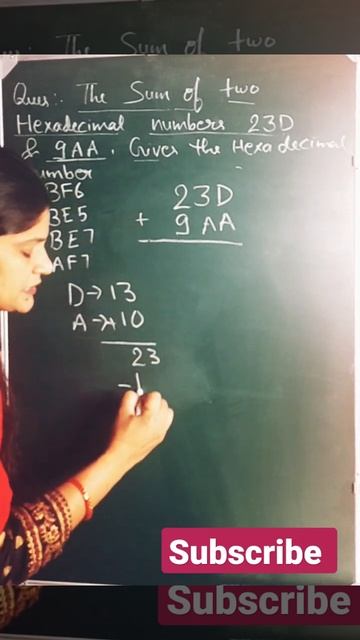 The Sum of two
Ques:- The Sum of two
Hexadecimal numbers 23D
& 9AA. Gives the Hexadecimal
umber
BF6
BE5
BE7
AF7
23D
+ 9AA
D→13
A→+10
23
-1
Subscribe
Subscribe